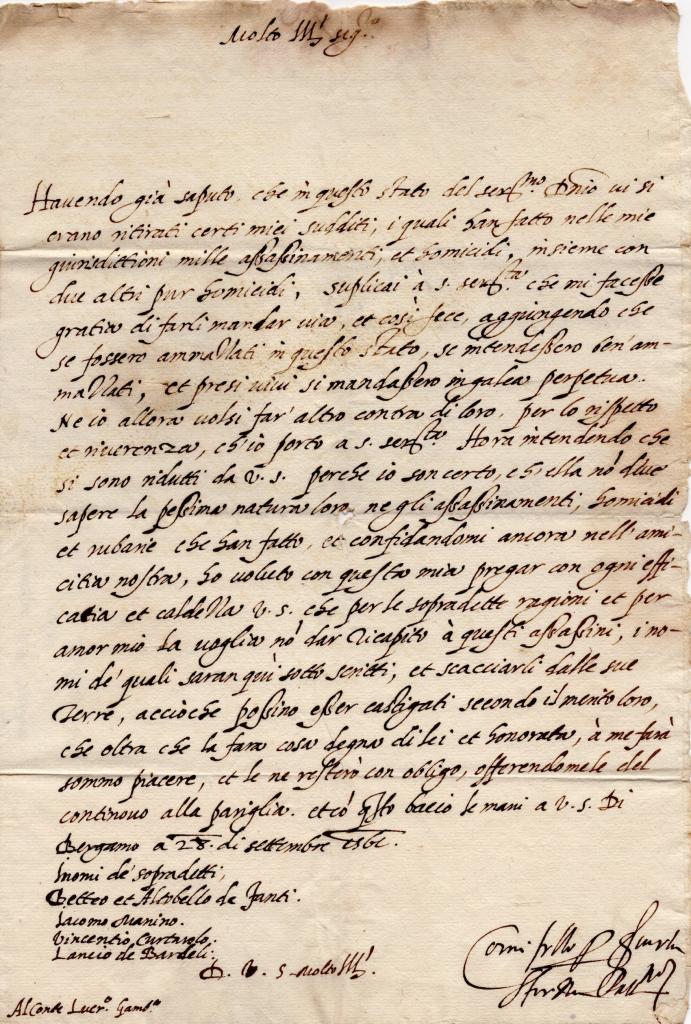 Molto Ill. sig.ʳ
Havendo già saputo, che in questo stato del ser.mo Dnio vi si
erano ritirati certi miei sudditi, i quali han fatto nelle mie
giurisdittioni mille assassinamenti, et homicidi, insieme con
due altri pur homicidi, suplicai à s. ser.ta che mi facesse
gratia di farli mandar via, et così fece, aggiungendo che
se fossero ammazzati in questo stato, se intendessero ben' am-
mazzati, et presi vivi si mandassero in galea perpetua.
Ne io allora volsi far' altro contra di loro, per lo rispetto
et riverenza, ch'io porto a s. ser.ta Hora intendendo che
si sono ridutti da v. s. perche io son certo, ch'ella nō deve
sapere la pessima natura loro, ne gli assassinamenti, homicidi
et rubarie che han fatto, et confidandomi ancora nell' ami-
citia nostra, ho voluto con questa mia pregar con ogni effi-
catia et caldezza v. s. che per le sopradette ragioni et per
amor mio la voglia nō dar ricapito à questi assassini, i no-
mi de' quali saran quì sotto scritti, et scacciarli dalle sue
Terre, acciòche possino esser castigati secondo il merito loro,
che oltra che la fara cosa degna di lei et honorata, à me farà
sommo piacere, et le ne resterò con obligo, offerendomele del
continovo alla pariglia. et cō q̄sto bacio le mani a v. s. Di
Bergamo a 28. di settembre
I nomi de' sopradetti,
et Altobello de
Iacomo Manino.
Vincentio
Lancio de Bardeli.
D. V. S. Molto Ill.
Sforza
Al Conte Lucr.º Gamb.ª